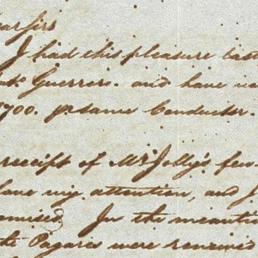 I had this pleasure last
Guerrero. and have
700. p same Conductor.
receipt of Mr Jolly's
have my attention, and I
omised. In the meanti
the Pagares were renewed